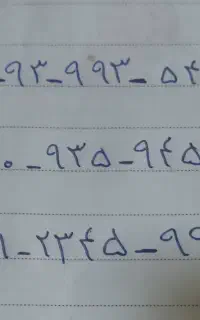 -۹۳-۹۹۳-۵۴
۰-۹۳۵-۹۴۵
۱-۲۳۴۵-۹۹